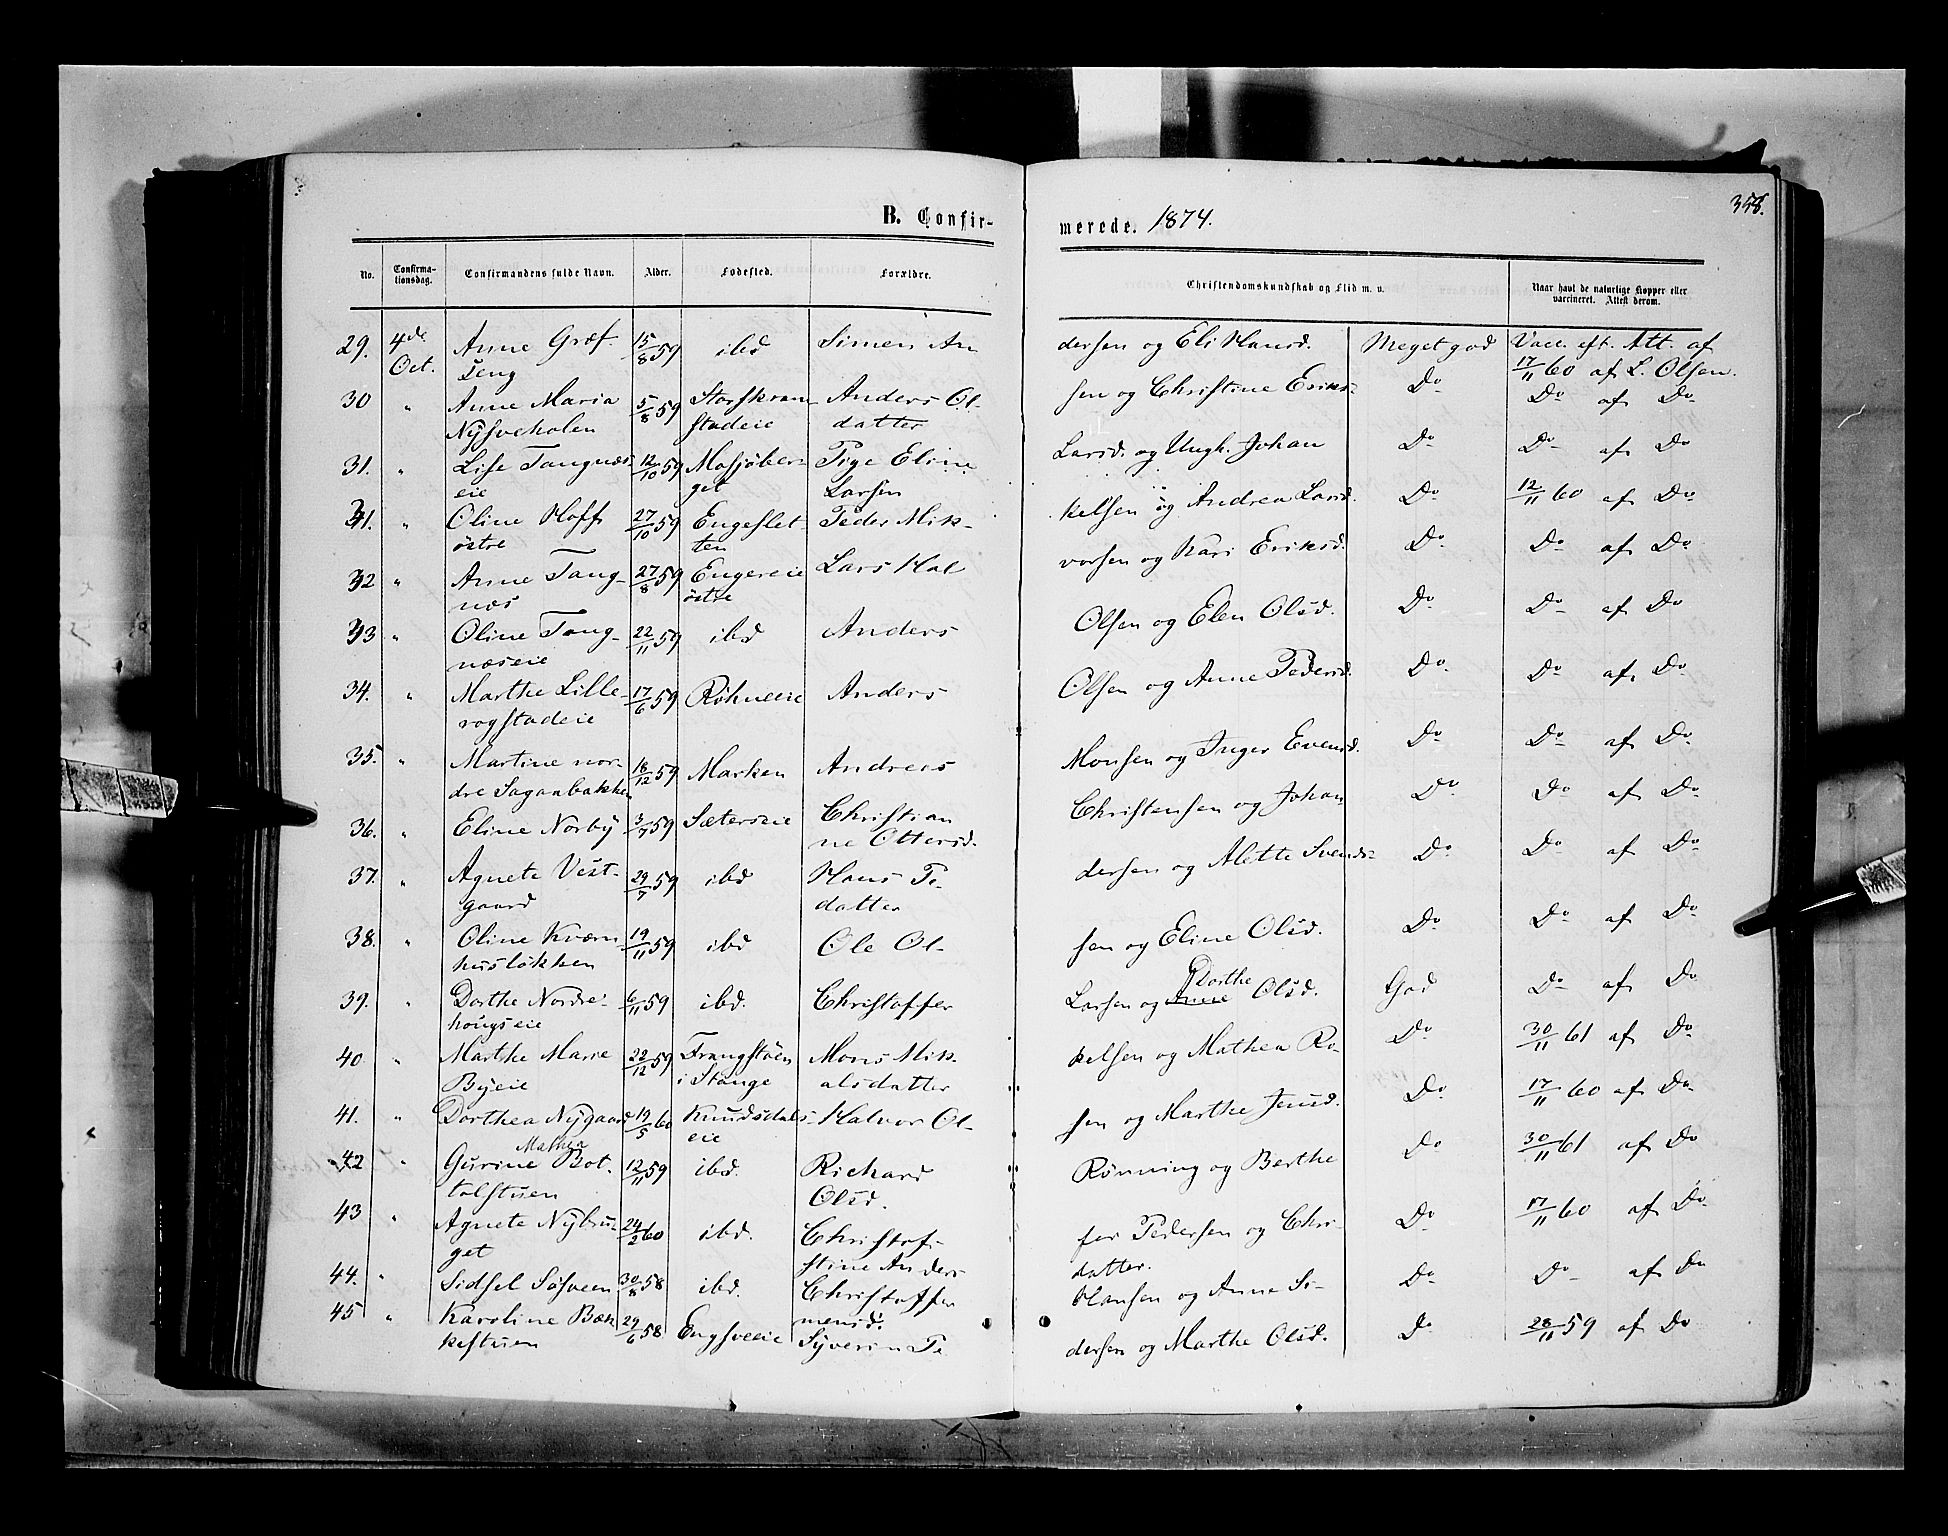 B. Confir-
merede. 1874.
358.
No. Confirma-tionsdag. Confirmandens fulde Navn. Alder. Fødested. Forældre. Christendomskundskab og Flid m. v. Naar havt de naturlige Kopper eller vaccineret. Attest derom.
29. 4de Anne Græf- 15/8 59 ibd Simen An dersen og Eli Hansd. Meget god Vacc. eft. Att. af
Oct. seng 17/11 60 af L. Olsen.
30 " Anne Maria 5/8 59 Storskram- Anders Ol- sen og Christine Eriks- Do Do af Do
Nysveholen stadeie datter
31. " Lise Tangnæs- 12/10 59 Mosjøber- Pige Eline Larsd. og Ungk. Johan Do Do af Do
eie get Larsen
31. " Oline Hoff 27/10 59 Engeslet- Peder Mik- kelsen og Andrea Larsd. Do 12/11 60 af Do
østre ten
32 " Anne Tang- 27/8 59 Engereie Lars Hal vorsen og Kari Eriksd. Do Do af Do
næs østre
33 " Oline Tang- 22/11 59 ibd Anders Olsen og Elen Olsd. Do Do af Do
næseie
34. " Marthe Lille- 17/6 59 Røhneeie Anders Olsen og Anne Pedersd. Do Do af Do
rogstadeie
35. " Martine nor- 18/12 59 Marken Andreas Monsen og Inger Evensd. Do Do af Do
dre Sagaabakken
36. " Eline Norby 3/7 59 Sæterseie Christian Christensen og Johan Do Do af Do
ne Ottersd.
37. " Agnete Vest- 29/7 59 ibd Hans Pe- dersen og Alette Svends- Do Do af Do
gaard datter
38. " Oline Kværn 19/11 59 ibd Ole Ol- sen og Eline Olsd. Do Do af Do
husløkken
Dorthe
39. " Dorthe Nordre- 6/11 59 ibd. Christoffer Larsen og Anne Olsd. God Do af Do
hougseie
40 " Marthe Marie 22/12 59 Frangstøen Mons Mik- kelsen og Mathea Ro- Do 30/11 61 af Do
Byeie i Stange alsdatter
41. " Dorthea Nygaard 19/5 60 Knudsdals- Halvor Ol- sen og Marthe Jensd. Do 17/11 60 af Do
eie
Mathea
42 " Gurine Bot- 12/11 59 ibd. Richard Rønning og Berthe Do 30/11 61 af Do
tolstuen Olsd.
43 " Agnete Nybrut- 24/2 60 ibd. Christof- fer Pedersen og Chri- Do 17/11 60 af Do
get stine Anders datter.
44. " Sidsel Søsveen 30/8 58 ibd. Christoffer Hansen og Anne Si- Do Do af Do
mensd.
45 " Karoline Bæk 29/6 58 Engsveeie Syverin Pe dersen og Marthe Olsd. Do 28/11 59 af Do
kestuen